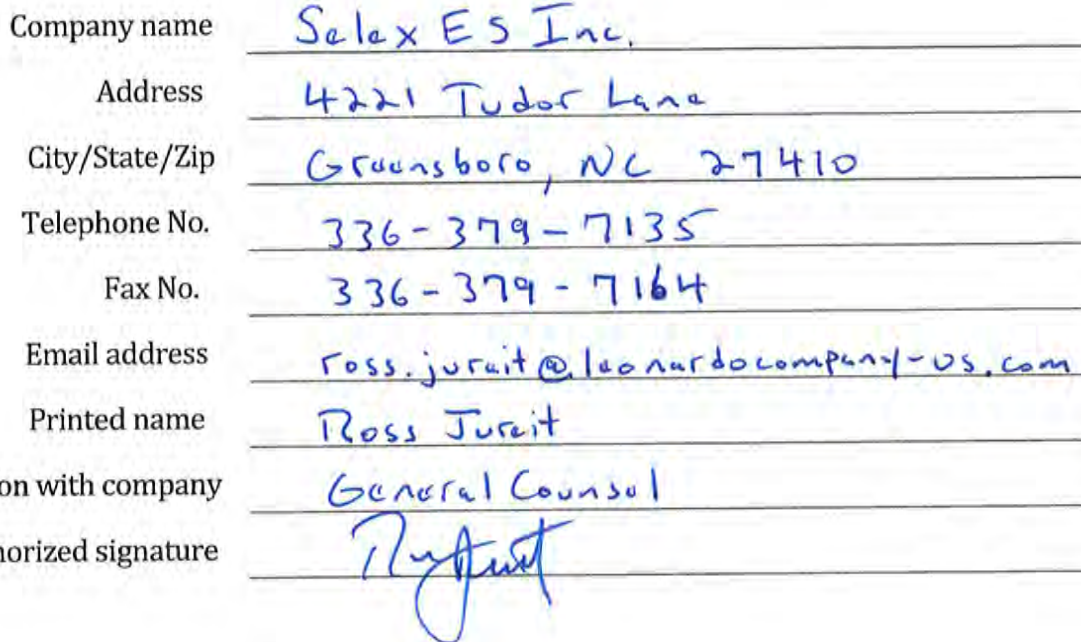 Company name Selex ES Inc.
Address 4221 Tudor Lane
City/State/Zip Greensboro, NC 27410
Telephone No. 336-379-7135
Fax No. 336-379-7164
Email address ross.jurait@leonardocompany-us.com
Printed name Ross Jurait
on with company General Counsel
horized signature